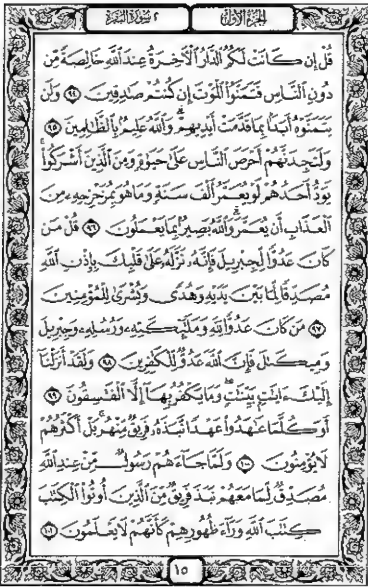 سورة البقرة ٢
الجزء الأول
قُلْ إِن كَانَتْ لَكُمُ الدَّارُ الْآخِرَةُ عِندَ اللَّهِ خَالِصَةً مِّن
دُونِ النَّاسِ فَتَمَنَّوُا الْمَوْتَ إِن كُنتُمْ صَادِقِينَ ٩٤ وَلَن
يَتَمَنَّوْهُ أَبَدًا بِمَا قَدَّمَتْ أَيْدِيهِمْ وَاللَّهُ عَلِيمٌ بِالظَّالِمِينَ ٩٥
وَلَتَجِدَنَّهُمْ أَحْرَصَ النَّاسِ عَلَىٰ حَيَوٰةٍ وَمِنَ الَّذِينَ أَشْرَكُوا
يَوَدُّ أَحَدُهُمْ لَوْ يُعَمَّرُ أَلْفَ سَنَةٍ وَمَا هُوَ بِمُزَحْزِحِهِ مِنَ
الْعَذَابِ أَن يُعَمَّرَ وَاللَّهُ بَصِيرٌ بِمَا يَعْمَلُونَ ٩٦ قُلْ مَن
كَانَ عَدُوًّا لِّجِبْرِيلَ فَإِنَّهُ نَزَّلَهُ عَلَىٰ قَلْبِكَ بِإِذْنِ اللَّهِ
مُصَدِّقًا لِّمَا بَيْنَ يَدَيْهِ وَهُدًى وَبُشْرَىٰ لِلْمُؤْمِنِينَ
٩٧ مَن كَانَ عَدُوًّا لِّلَّهِ وَمَلَٰٓئِكَتِهِ وَرُسُلِهِ وَجِبْرِيلَ
وَمِيكَىٰلَ فَإِنَّ اللَّهَ عَدُوٌّ لِّلْكَٰفِرِينَ ٩٨ وَلَقَدْ أَنزَلْنَا
إِلَيْكَ ءَايَٰتٍ بَيِّنَٰتٍ وَمَا يَكْفُرُ بِهَا إِلَّا الْفَٰسِقُونَ ٩٩
أَوَكُلَّمَا عَٰهَدُوا عَهْدًا نَّبَذَهُ فَرِيقٌ مِّنْهُم بَلْ أَكْثَرُهُمْ
لَا يُؤْمِنُونَ ١٠٠ وَلَمَّا جَاءَهُمْ رَسُولٌ مِّنْ عِندِ اللَّهِ
مُصَدِّقٌ لِّمَا مَعَهُمْ نَبَذَ فَرِيقٌ مِّنَ الَّذِينَ أُوتُوا الْكِتَٰبَ
كِتَٰبَ اللَّهِ وَرَاءَ ظُهُورِهِمْ كَأَنَّهُمْ لَا يَعْلَمُونَ ١٠١
١٥